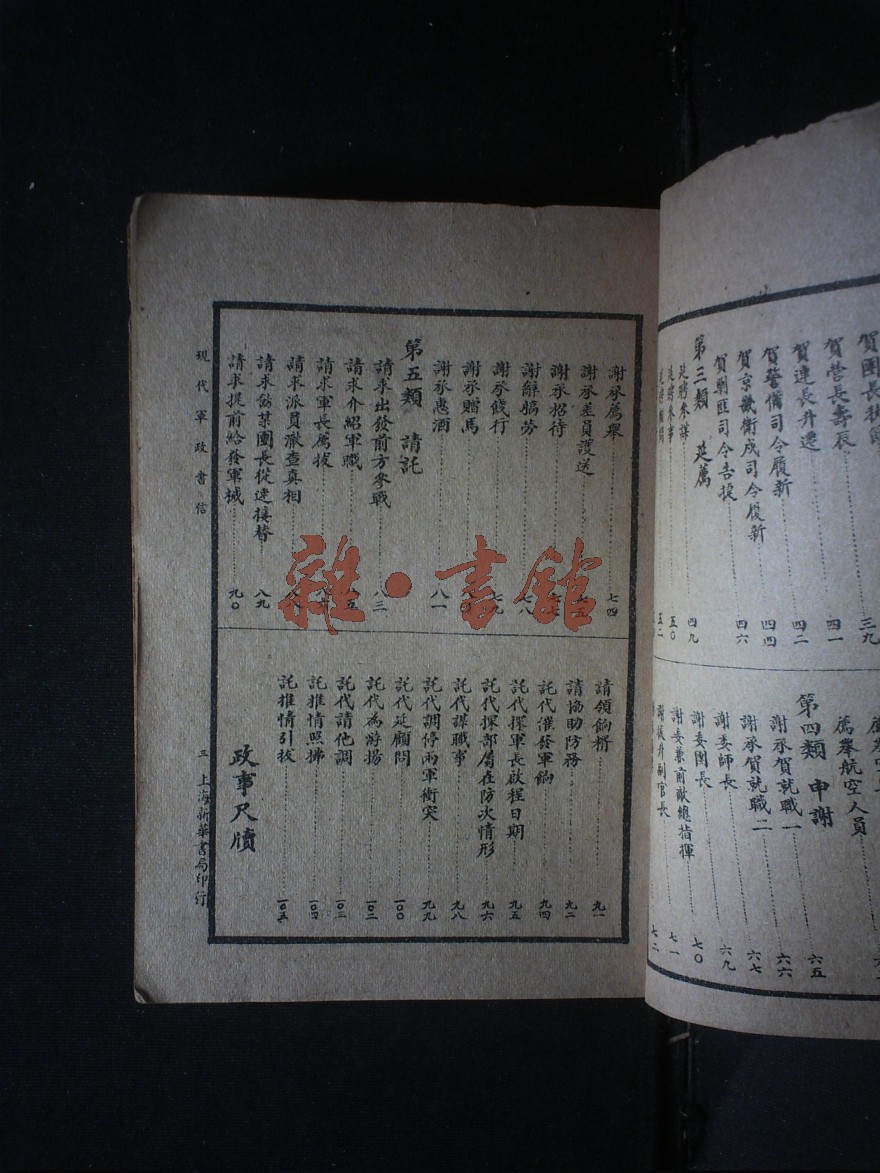 賀團長
賀營長壽辰 四一
賀連長升遷 四二
賀警備司令履新 四四
賀京畿衛戍司令履新
賀剿匪司令告捷 四六
第三類 延薦
延聘參謀 四九
延聘參事 五〇
薦舉航空人員
第四類 申謝
謝承賀就職一 六五
謝承賀就職二 六六
謝委師長 六七
謝委團長 六九
謝委兼前敵總指揮 七〇
七一
七二
謝承薦舉 七四
謝承差員護送
謝承招待
謝辭犒勞 七八
謝承餞行
謝承贈馬
謝承惠酒 八一
第五類 請託
請求出發前方參戰 八三
請求介紹軍職
請求軍長薦拔
請求派員澈查真相
請求飭某團長從速接替 八九
請求提前給發軍械 九〇
請領餉糈 九一
請協助防務 九二
託代催發軍餉 九四
託代探軍長啟程日期 九五
託代探部屬在防次情形 九六
託代謀職事 九八
託代調停兩軍衝突 九九
託代延顧問 一〇〇
託代為游揚 一〇二
託代請他調 一〇三
託推情照拂 一〇四
託推情引拔 一〇五
政事尺牘
現代軍政書信
三
上海新華書局印行
雜·書館